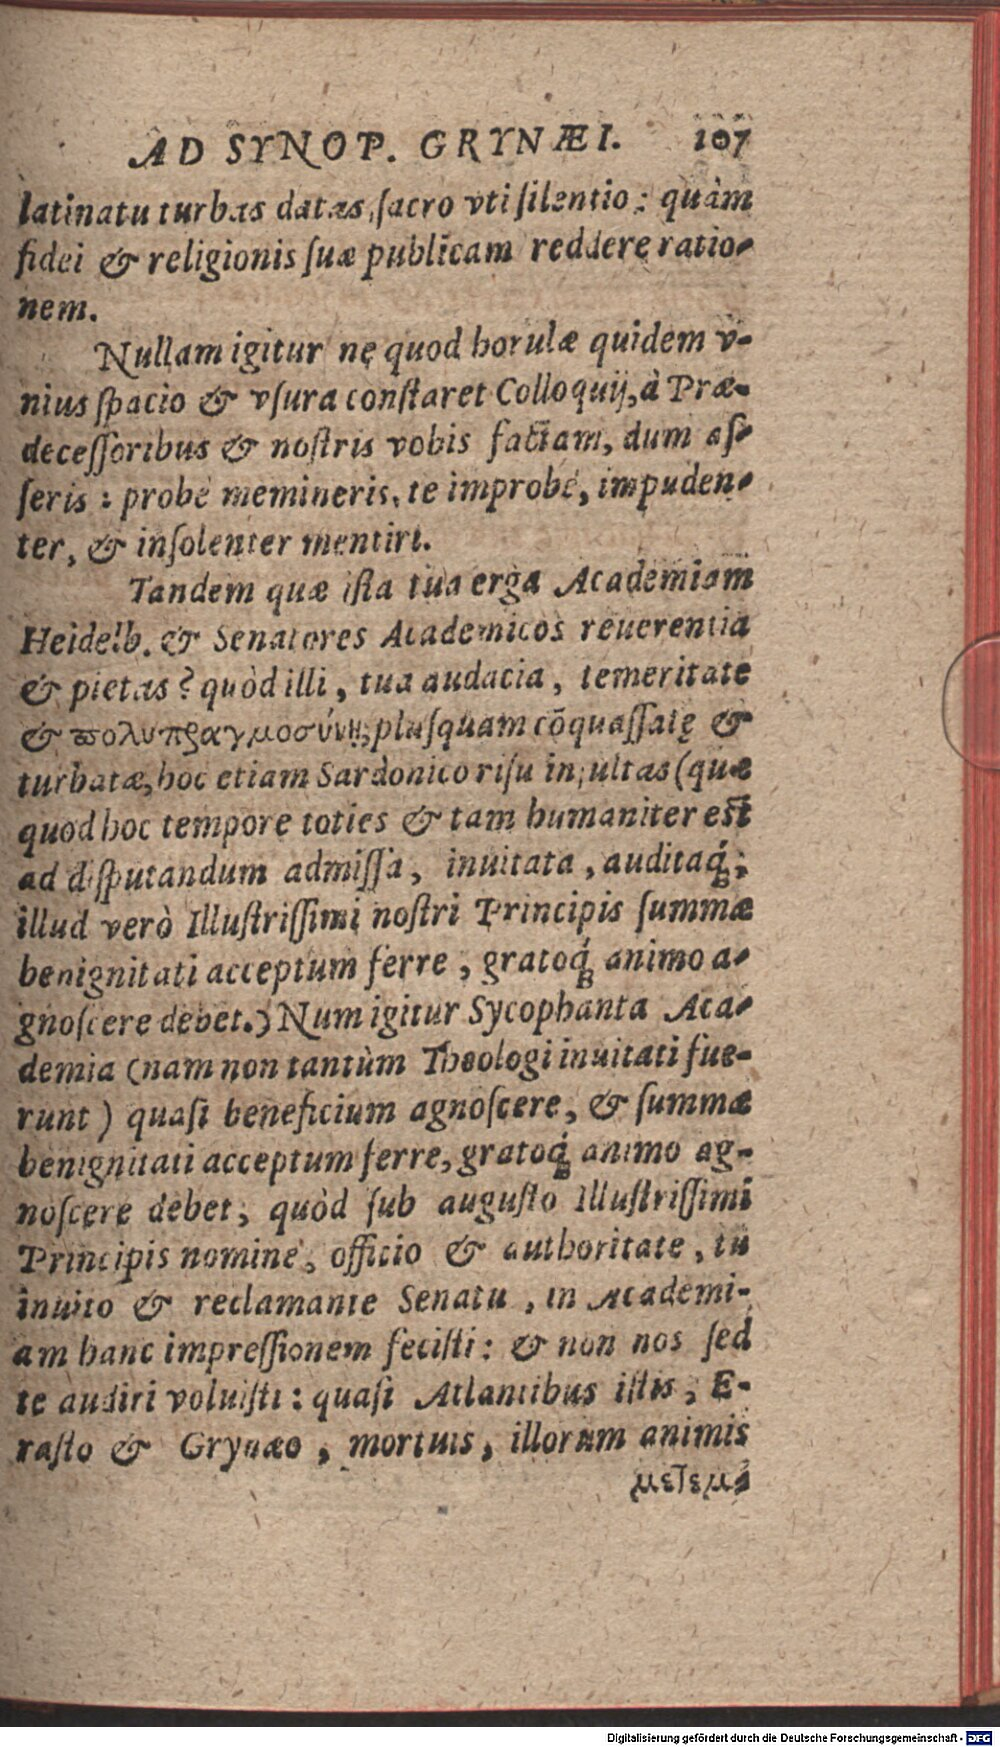 AD SYNOP. GRYNÆI. 107
latinatu turbas datas, ſacro vti ſilentio: quàm
fidei & religionis ſuæ publicam reddere ratio-
nem.
Nullam igitur ne quod horulæ quidem v-
nius ſpacio & vſura conſtaret Colloquij, à Præ-
deceſſoribus & noſtris vobis factam, dum aſ-
ſeris: probè memineris, te improbè, impuden-
ter, & inſolenter mentiri.
Tandem quæ iſta tua erga Academiam
Heidelb. & Senatores Academicos reuerentia
& pietas? quòd illi, tua audacia, temeritate
& πολυπραγμοσύνῃ, pluſquam cōquaſſatę &
turbatæ, hoc etiam Sardonico riſu inſultas (quæ
quod hoc tempore toties & tam humaniter est
ad diſputandum admiſſa, inuitata, auditaq́;
illud verò Illuſtriſſimi noſtri Principis ſummæ
benignitati acceptum ferre, gratoq́ animo a-
gnoſcere debet.) Num igitur Sycophanta Aca-
demia (nam non tantùm Theologi inuitati fue-
runt) quaſi beneficium agnoſcere, & ſummæ
benignitati acceptum ferre, gratoq́ animo ag-
noſcere debet, quòd ſub auguſto Illuſtriſſimi
Principis nomine, officio & authoritate, tu
inuito & reclamante Senatu, in Academi-
am hanc impreſſionem feciſti: & non nos ſed
te audiri voluiſti: quaſi Atlantibus iſtis, E-
raſto & Grynæo, mortuis, illorum animis
μετεμ-
Digitalisierung gefördert durch die Deutsche Forschungsgemeinschaft - DFG